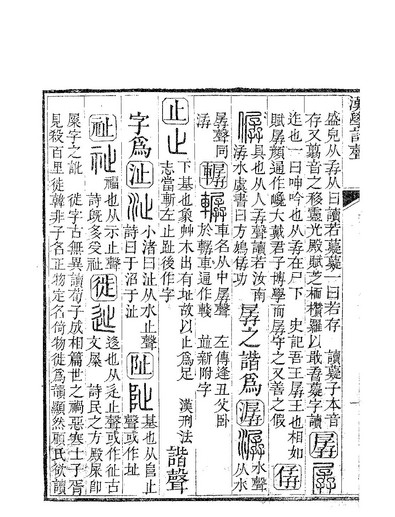 漢學諧聲
盛皃从孨从曰讀若薿薿一曰若存 讀薿子本音
存又翦音之移靈光殿賦芝栭欑羅以
孱
迮也一曰呻吟也从孨在尸下 史記吾王孱王也相如
賦孱顏通作巉大戴君子博學而孱守之又善之假
僝
具也从人孱聲讀若汝南
潺水虞書曰方鳩僝功
孱之諧為
潺
水聲
从水
孱聲同
潺
轏
車名从車孱聲 左傳逢丑父卧
於轏車通作棧 並新附字
止
下基也象艸木出有址故以止為足 漢刑法
志當斬左止趾後作字
諧聲
字為
沚
小渚曰沚从水止聲
詩曰于沼于沚
阯
基也从𨸏止
聲或作址
祉
福也从示止聲
詩既多受祉
徙
迻也从辵止聲或作征古
文屎 詩民之方殿屎即
屎字之訛 徙字古無異讀荀子成相篇世之禍惡賢士子胥
見殺百里徙韓非子名正物定名倚物徙為韻顯然顧氏欲讀